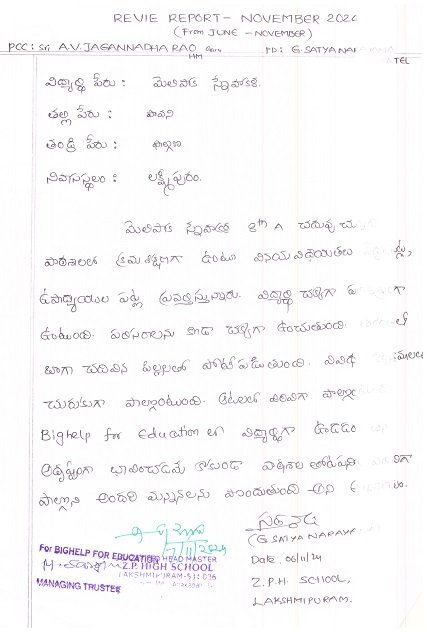 REVIE REPORT - NOVEMBER 2024
(From JUNE - NOVEMBER)
PCC: Sri A.V. JAGANNADHA RAO Garu PD: G. SATYANA
HM
TEL
విద్యార్థి పేరు : మెలిపాక స్నేహాకర్.
తల్లి పేరు : పావని
తండ్రి పేరు :
నివాసస్థలం : లక్ష్మీపురం.
మెలిపాక 8th A చదువు
పాఠశాలలో క్రమశిక్షణగా ఉంటూ వినయ విధేయతలు
ఉపాధ్యాయుల పట్ల ప్రవర్తిస్తున్నారు. విద్యార్థి చక్కగా గా
ఉంటుంది. పరిసరాలను కూడా చక్కగా ఉంచుతుంది.
బాగా చదివిన పిల్లలతో పోటీ పడుతుంది. వివిధ
చురుకుగా పాల్గొంటుంది. ఆటలలో
Bighelp for Education లో విద్యార్థిగా ఉండడం
అదృష్టంగా భావించడమే కాకుండా పాఠశాల
పాల్గొని అందరి మన్ననలను పొందుతుంది అని
(G SATYA NARAYA
7/11/2024
For BIGHELP FOR EDUCATION
HEAD MASTER
Z.P. HIGH SCHOOL
LAKSHMIPURAM-531 036
MANAGING TRUSTEE
Date: 06/11/24
Z.P.H SCHOOL,
LAKSHMIPURAM.